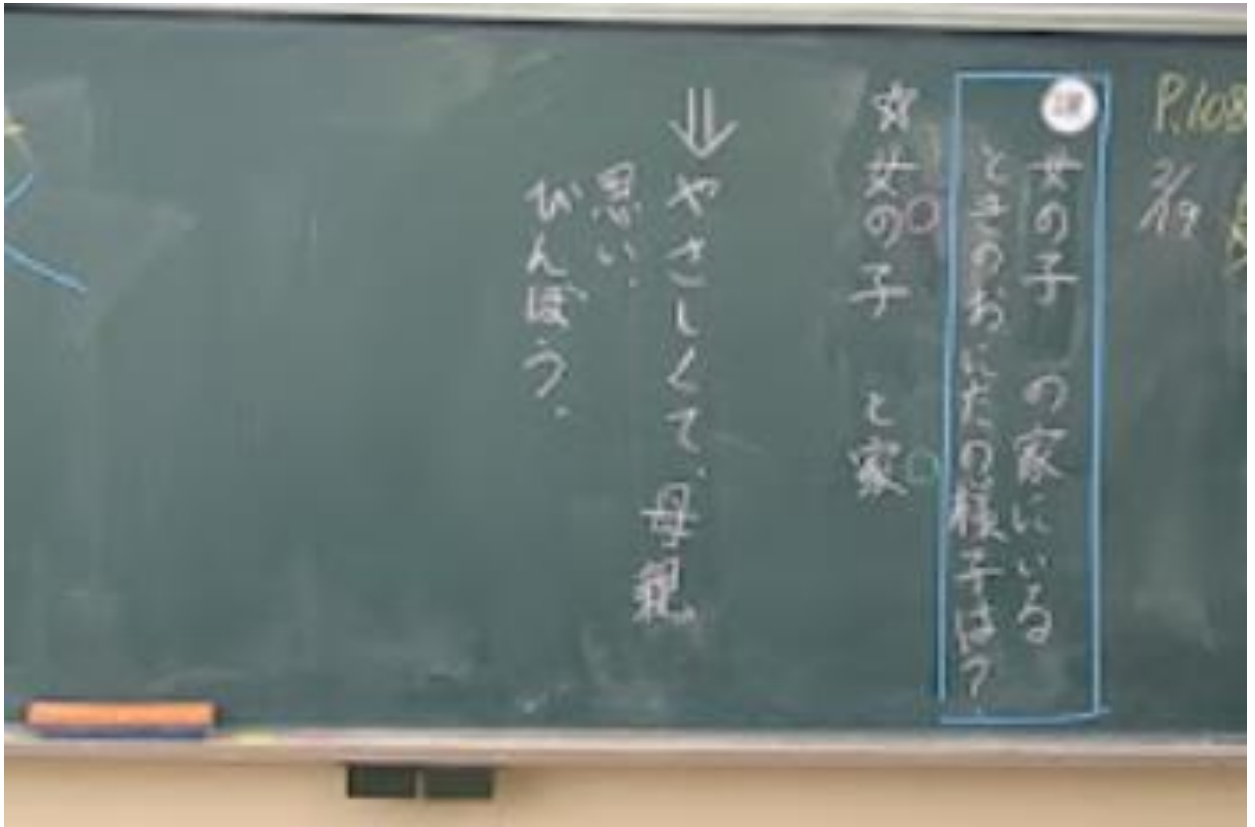 P.108
2/19
課
女の子の家にいる
ときのおにたの様子は?
☆女の子 と家
⇓やさしくて、母親
思い.
びんぼう.